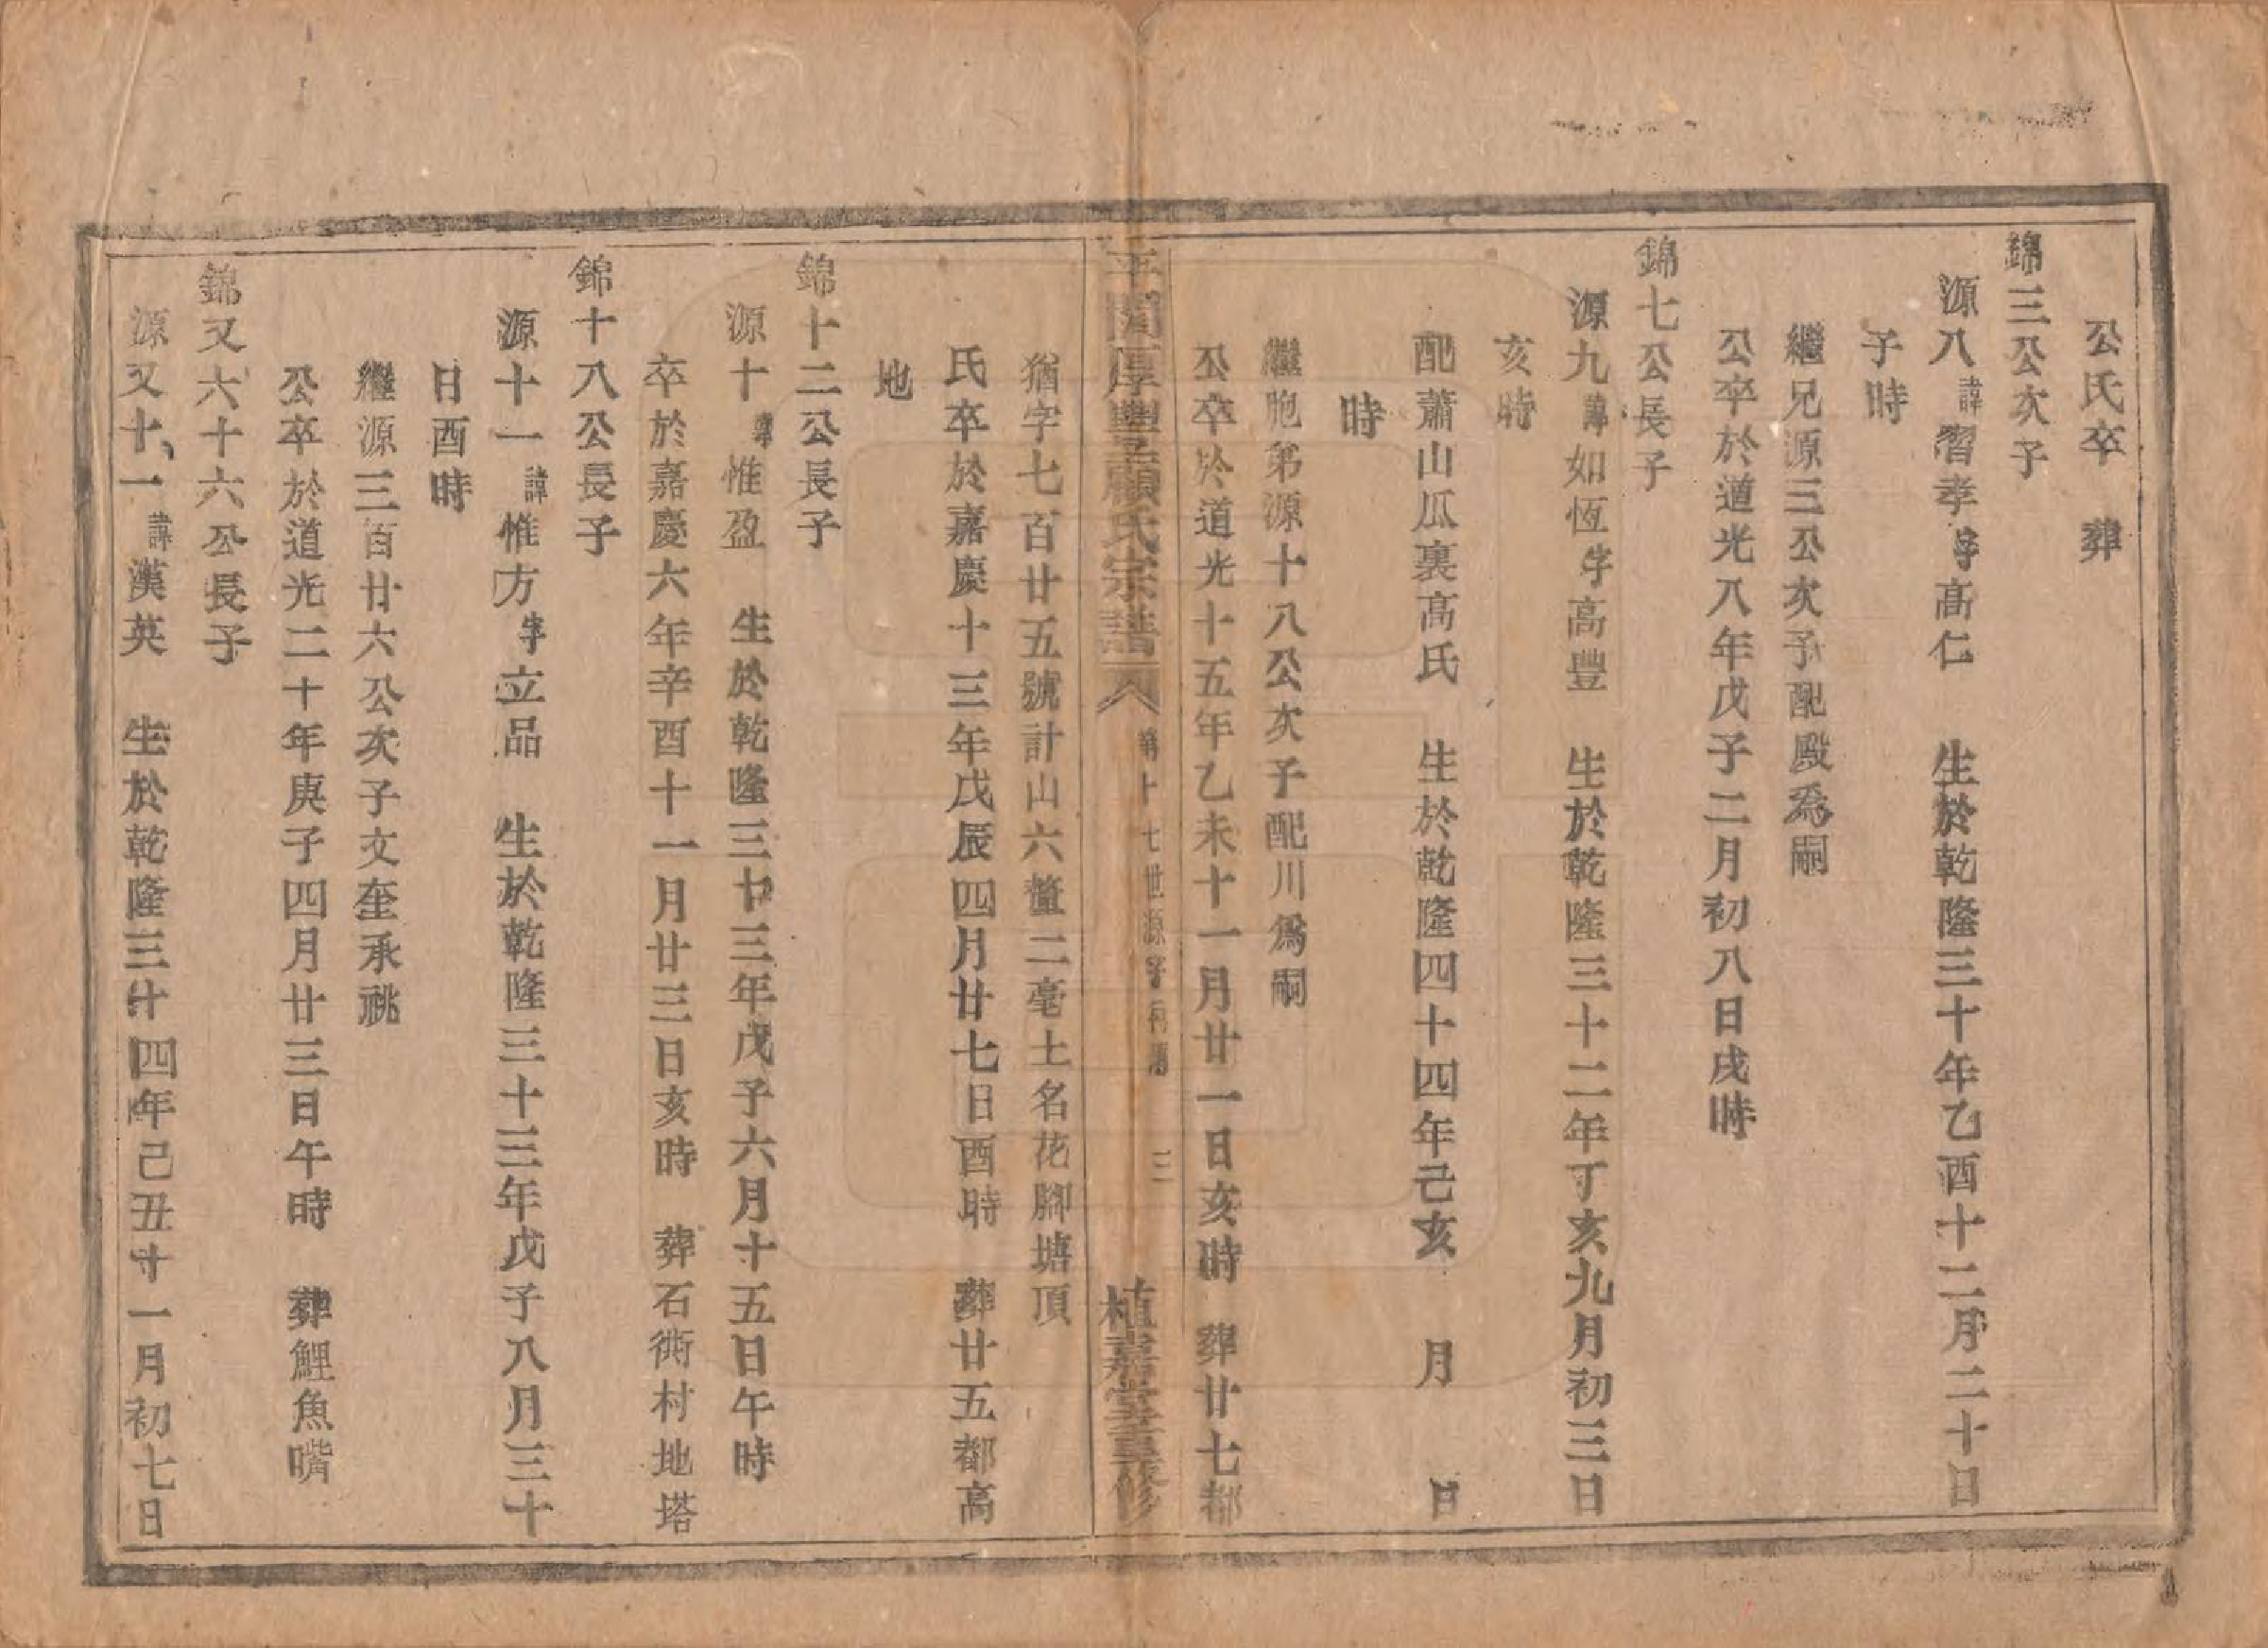 公氏卒　葬
錦三公次子
源八諱習孝字高仁　生於乾隆三十年乙酉十二月二十日
子時
繼兄源三公次子配殿為嗣
公卒於道光八年戊子二月初八日戌時
錦七公長子
源九諱如恆字高豐　生於乾隆三十二年丁亥九月初三日
亥時
配蕭山瓜裏高氏　生於乾隆四十四年己亥　月　日
時
繼胞弟源十八公次子配川為嗣
公卒於道光十五年乙未十一月廿一日亥時　葬廿七都
平閬厚豐顧氏宗譜　卷　第十七世源字行傳　三　植嘉堂重修
猶字七百廿五號計山六釐二毫土名花腳塘頂
氏卒於嘉慶十三年戊辰四月廿七日酉時　葬廿五都高
地
錦十二公長子
源十諱惟盈　生於乾隆三十三年戊子六月十五日午時
卒於嘉慶六年辛酉十一月廿三日亥時　葬石衖村地塔
錦十八公長子
源十一諱惟方字立品　生於乾隆三十三年戊子八月三十
日酉時
繼源三百廿六公次子文奎承祧
公卒於道光二十年庚子四月廿三日午時　葬鯉魚嘴
錦又六十六公長子
源又十一諱漢英　生於乾隆三十四年己丑十一月初七日